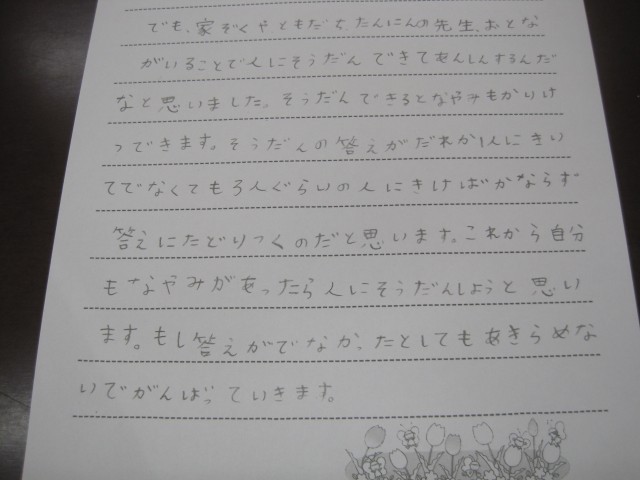 でも、家ぞくやともだち、たんにんの先生、おとな
がいることで人にそうだんできてあんしんするんだ
なと思いました。そうだんできるとなやみもかいけ
つできます。そうだんの答えがだれか1人にきい
てでなくても3人ぐらいの人にきけばかならず
答えにたどりつくのだと思います。これから自分
もなやみがあったら人にそうだんしようと思い
ます。もし答えがでなかったとしてもあきらめな
いでがんばっていきます。